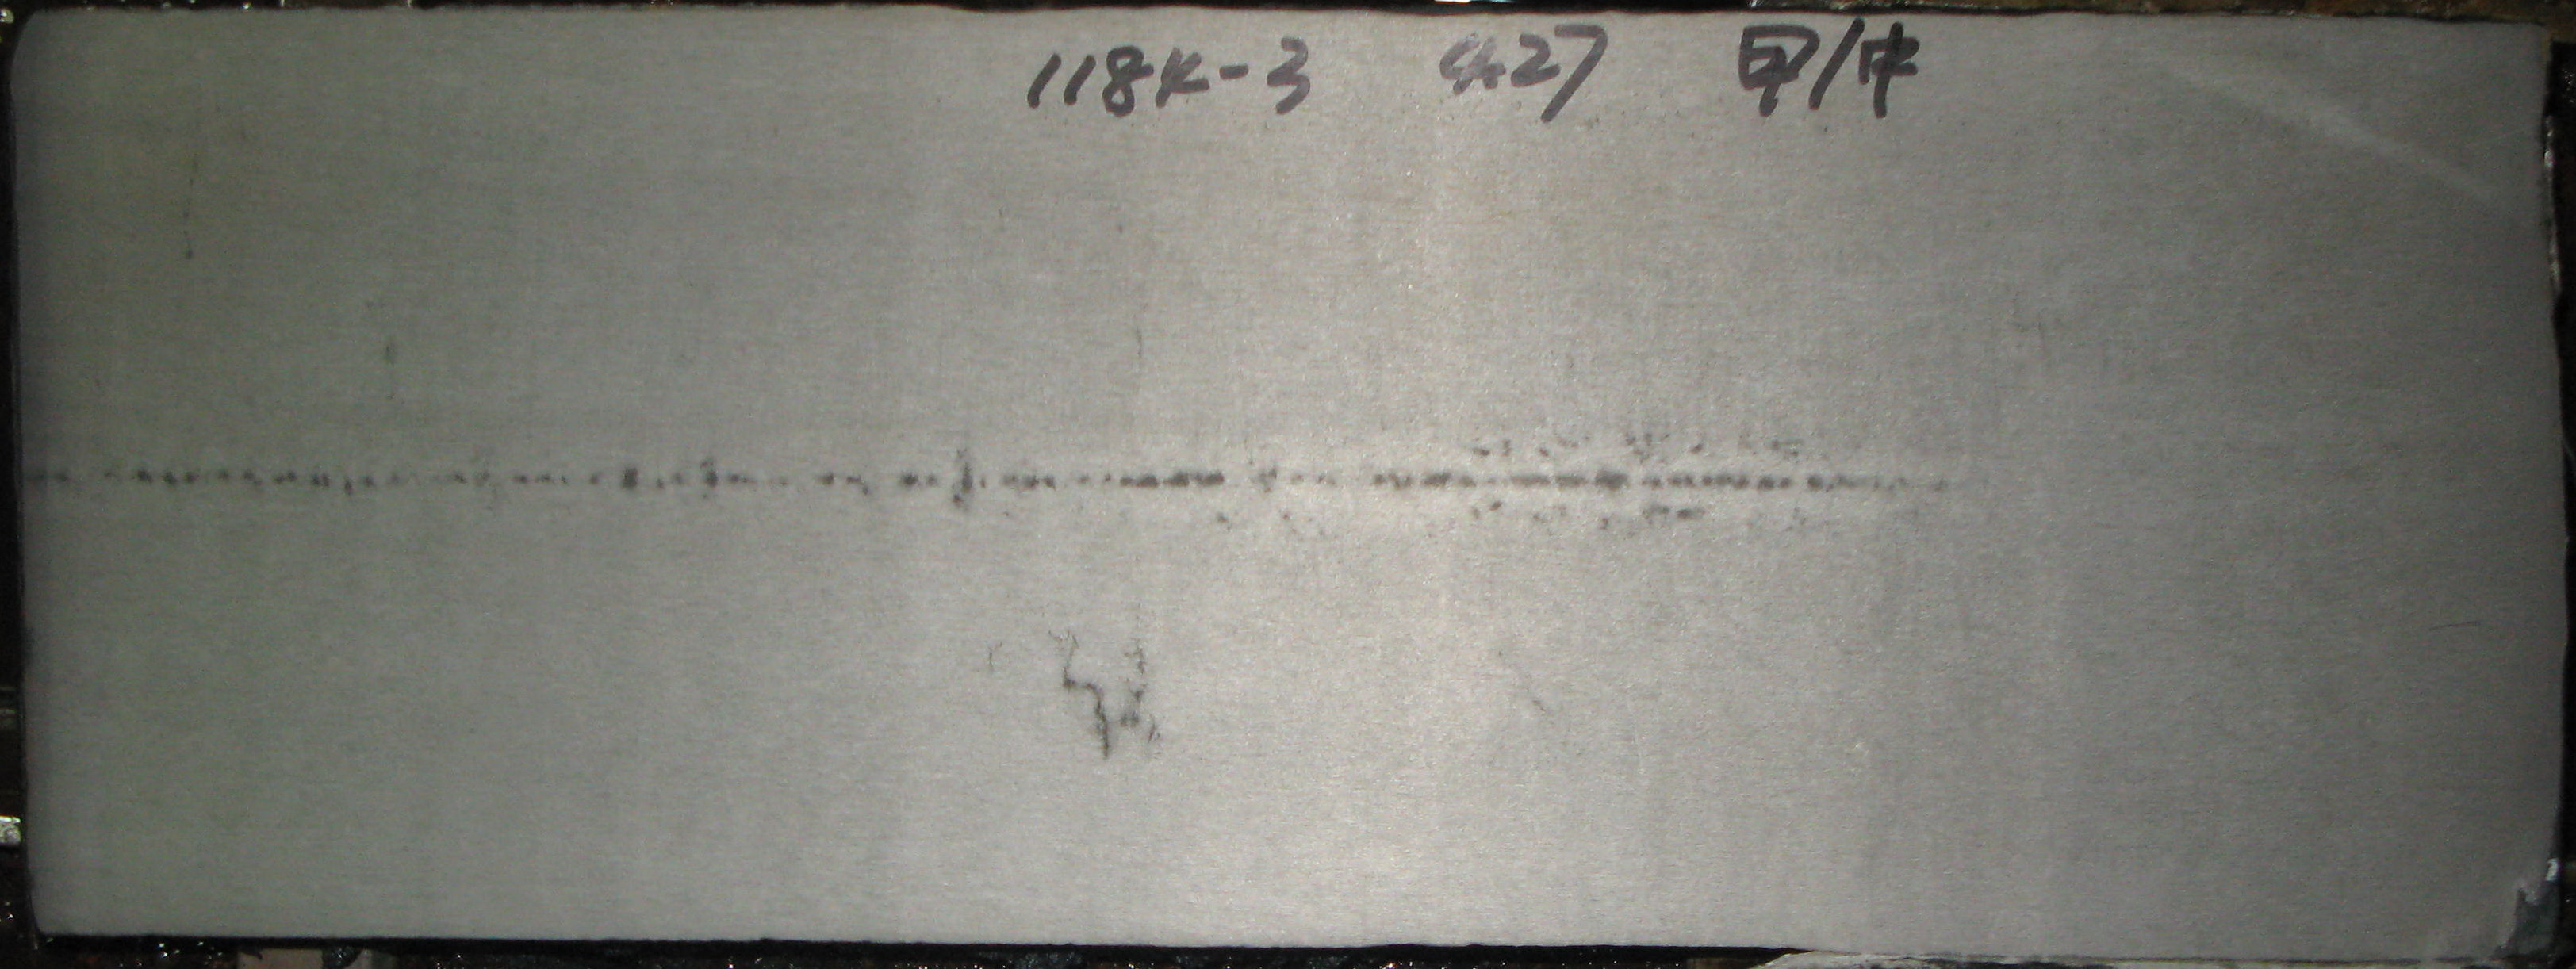 118K-3 4.27 甲/中